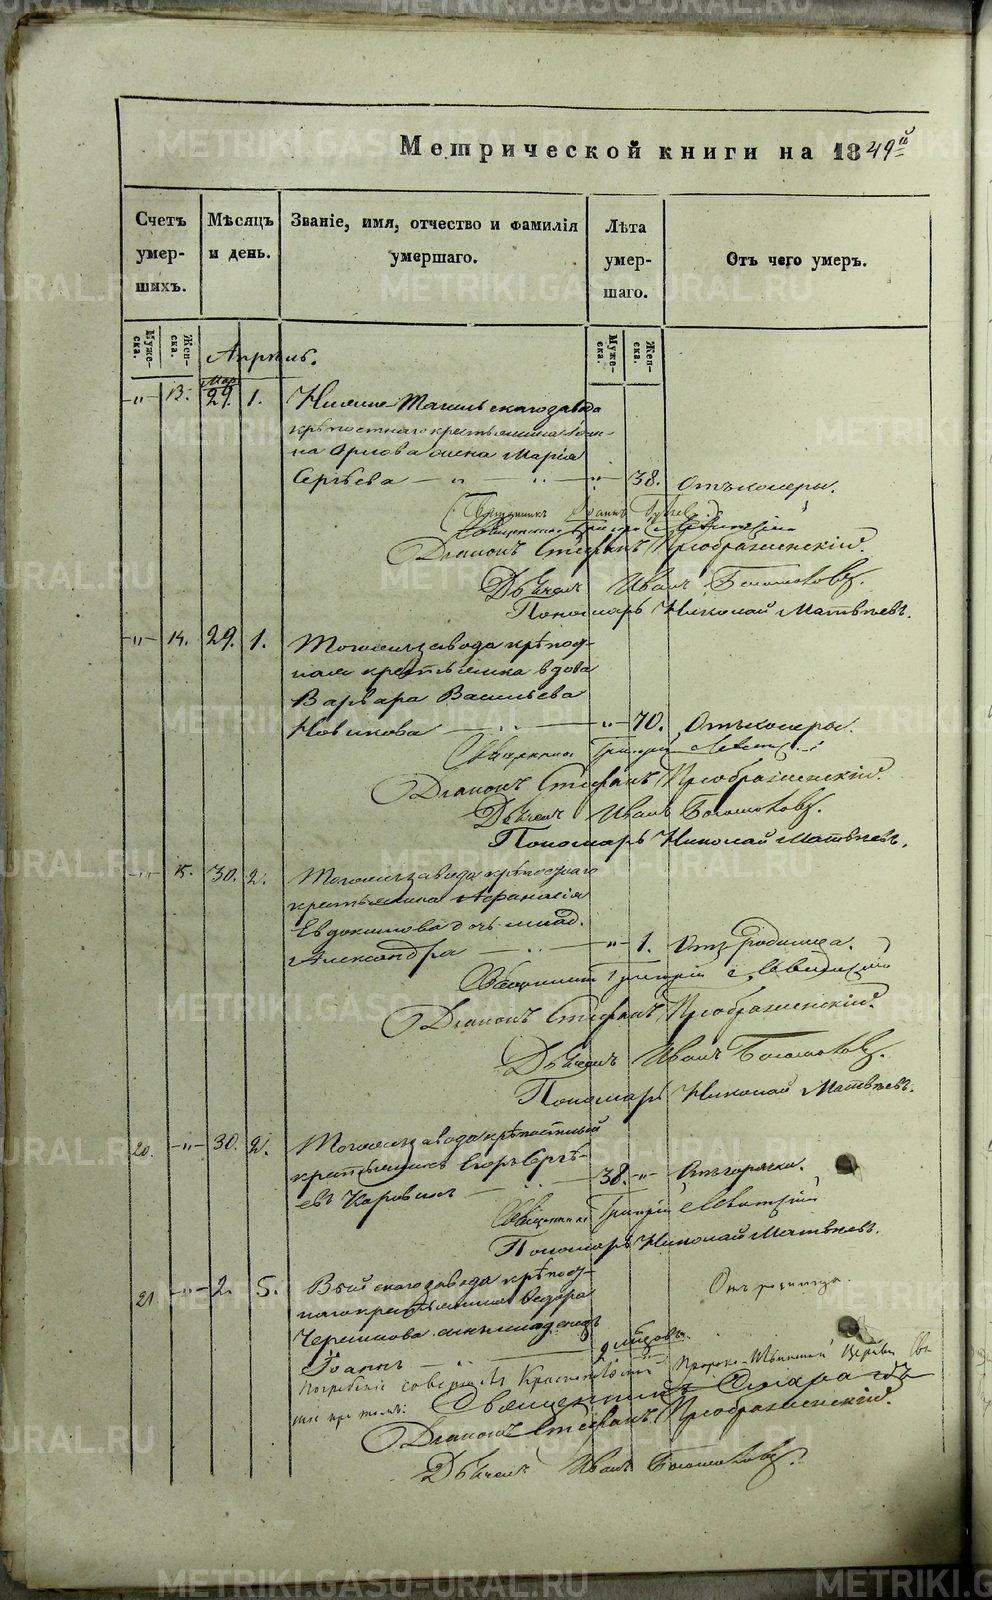 Метрической книги на 1849й
Счетъ умершихъ.
Мѣсяцъ и день.
Званіе, имя, отчество и фамилія умершаго.
Лѣта умершаго.
Отъ чего умеръ.
Мужеска.
Женска.
Мужеска.
Женска.
Апрѣль.
Мар.
-"- 13. 29. 1. Нижне-Тагильскаго завода
крѣпостнаго крестьянина
Орлова жена Марія
Сергѣева -"- 38. Отъ холеры.
Священникъ Іоаннъ
Діаконъ Стефанъ Преображенскій.
Дьячекъ Иванъ Богомоловъ.
Пономарь Николай Матвѣевъ.
-"- 14. 29. 1. Тогоже завода крѣпост-
ная крестьянка вдова
Варвара Васильева
Новикова -"- 70. Отъ холеры.
Священникъ Григорій Левитскій
Діаконъ Стефанъ Преображенскій.
Дьячекъ Иванъ Богомоловъ.
Пономарь Николай Матвѣевъ.
-"- 15. 30. 2. Тогоже завода крѣпостнаго
крестьянина Афанасія
Евдокимова дочь млад.
Александра -"- 1. Отъ родимца.
Священникъ Григорій Левитскій
Діаконъ Стефанъ Преображенскій.
Дьячекъ Иванъ Богомоловъ.
Пономарь Николай Матвѣевъ.
20. -"- 30. 2. Тогоже завода крѣпостный
крестьянинъ Егоръ Сергѣ-
евъ 38. -"- Отъ горячки.
Священникъ Григорій Левитскій
Пономарь Николай Матвѣевъ.
21 -"- 2. 5. Выйскаго завода крѣпост-
наго крестьянина Ѳедора
сынъ младенецъ
Іоаннъ 2 мѣсяцовъ. Отъ родимца.
Погребеніе совершалъ Пророко-Ильинской Церкви
Священникъ
Діаконъ Стефанъ Преображенскій.
Дьячекъ Иванъ Богомоловъ.
METRIKI.GASO-URAL.RU